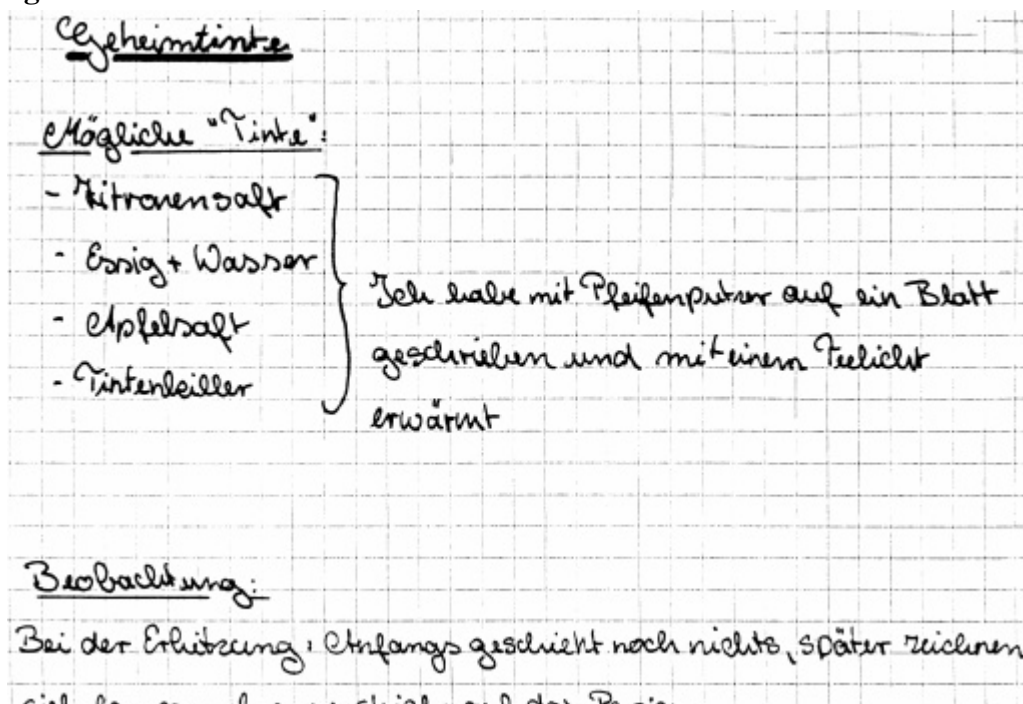 Geheimtinte
Mögliche "Tinte":
- Zitronensaft
- Essig + Wasser
- Apfelsaft
- Tintenkiller
Ich habe mit Pfeifenputzer auf ein Blatt
geschrieben und mit einem Teelicht
erwärmt
Beobachtung:
Bei der Erhitzung: Anfangs geschieht noch nichts, später zeichnen
sich auf das Papier